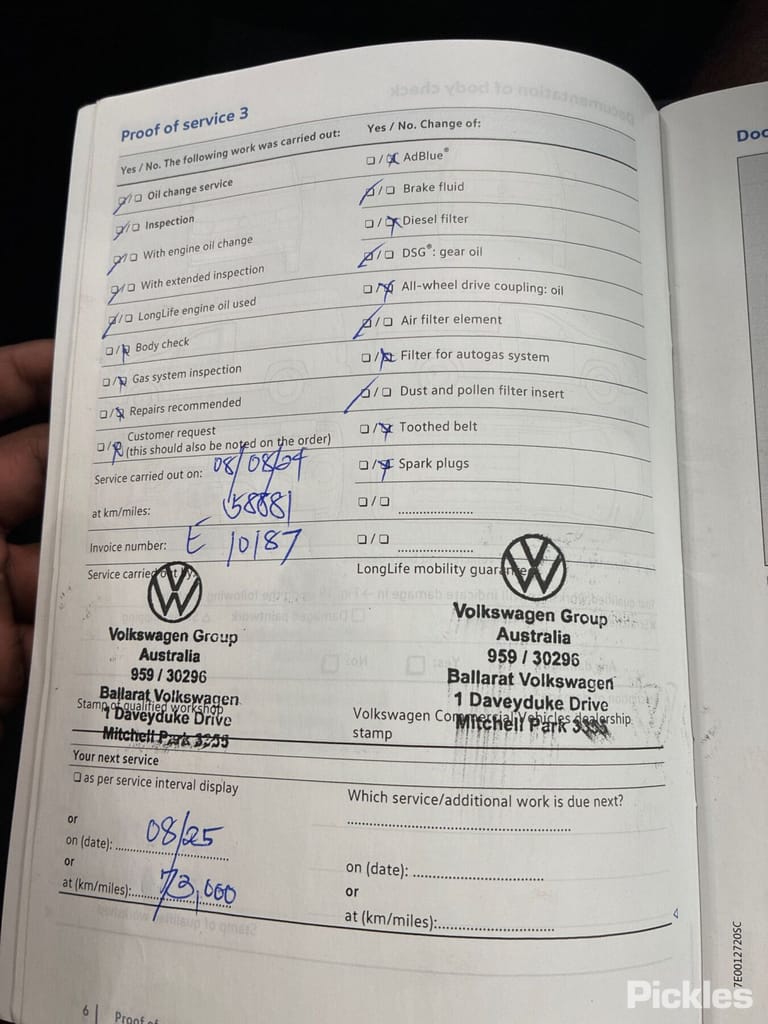 Proof of service 3
Yes / No. The following work was carried out:
☐/☐ Oil change service
☐/☐ Inspection
☐/☐ With engine oil change
☐/☐ With extended inspection
☐/☐ LongLife engine oil used
☐/☐ Body check
☐/☐ Gas system inspection
☐/☐ Repairs recommended
☐/☐ Customer request
(this should also be noted on the order)
Service carried out on: 08/08/24
at km/miles: 58881
Invoice number: E 10187
Service carried out by:
Volkswagen Group
Australia
959 / 30296
Ballarat Volkswagen
Stamp of qualified workshop
1 Daveyduke Drive
Mitchell Park 3355
Yes / No. Change of:
☐/☐ AdBlue®
☐/☐ Brake fluid
☐/☐ Diesel filter
☐/☐ DSG®: gear oil
☐/☐ All-wheel drive coupling: oil
☐/☐ Air filter element
☐/☐ Filter for autogas system
☐/☐ Dust and pollen filter insert
☐/☐ Toothed belt
☐/☐ Spark plugs
☐/☐ ....................
☐/☐ ....................
LongLife mobility guarantee
Volkswagen Group
Australia
959 / 30296
Ballarat Volkswagen
1 Daveyduke Drive
Mitchell Park
Volkswagen Commercial Vehicles dealership
stamp
Your next service
☐ as per service interval display
or
on (date): 08/25
or
at (km/miles): 73,000
Which service/additional work is due next?
on (date): ....................
or
at (km/miles): ....................
6 | Proof of
Doc
7E0012720SC
Pickles